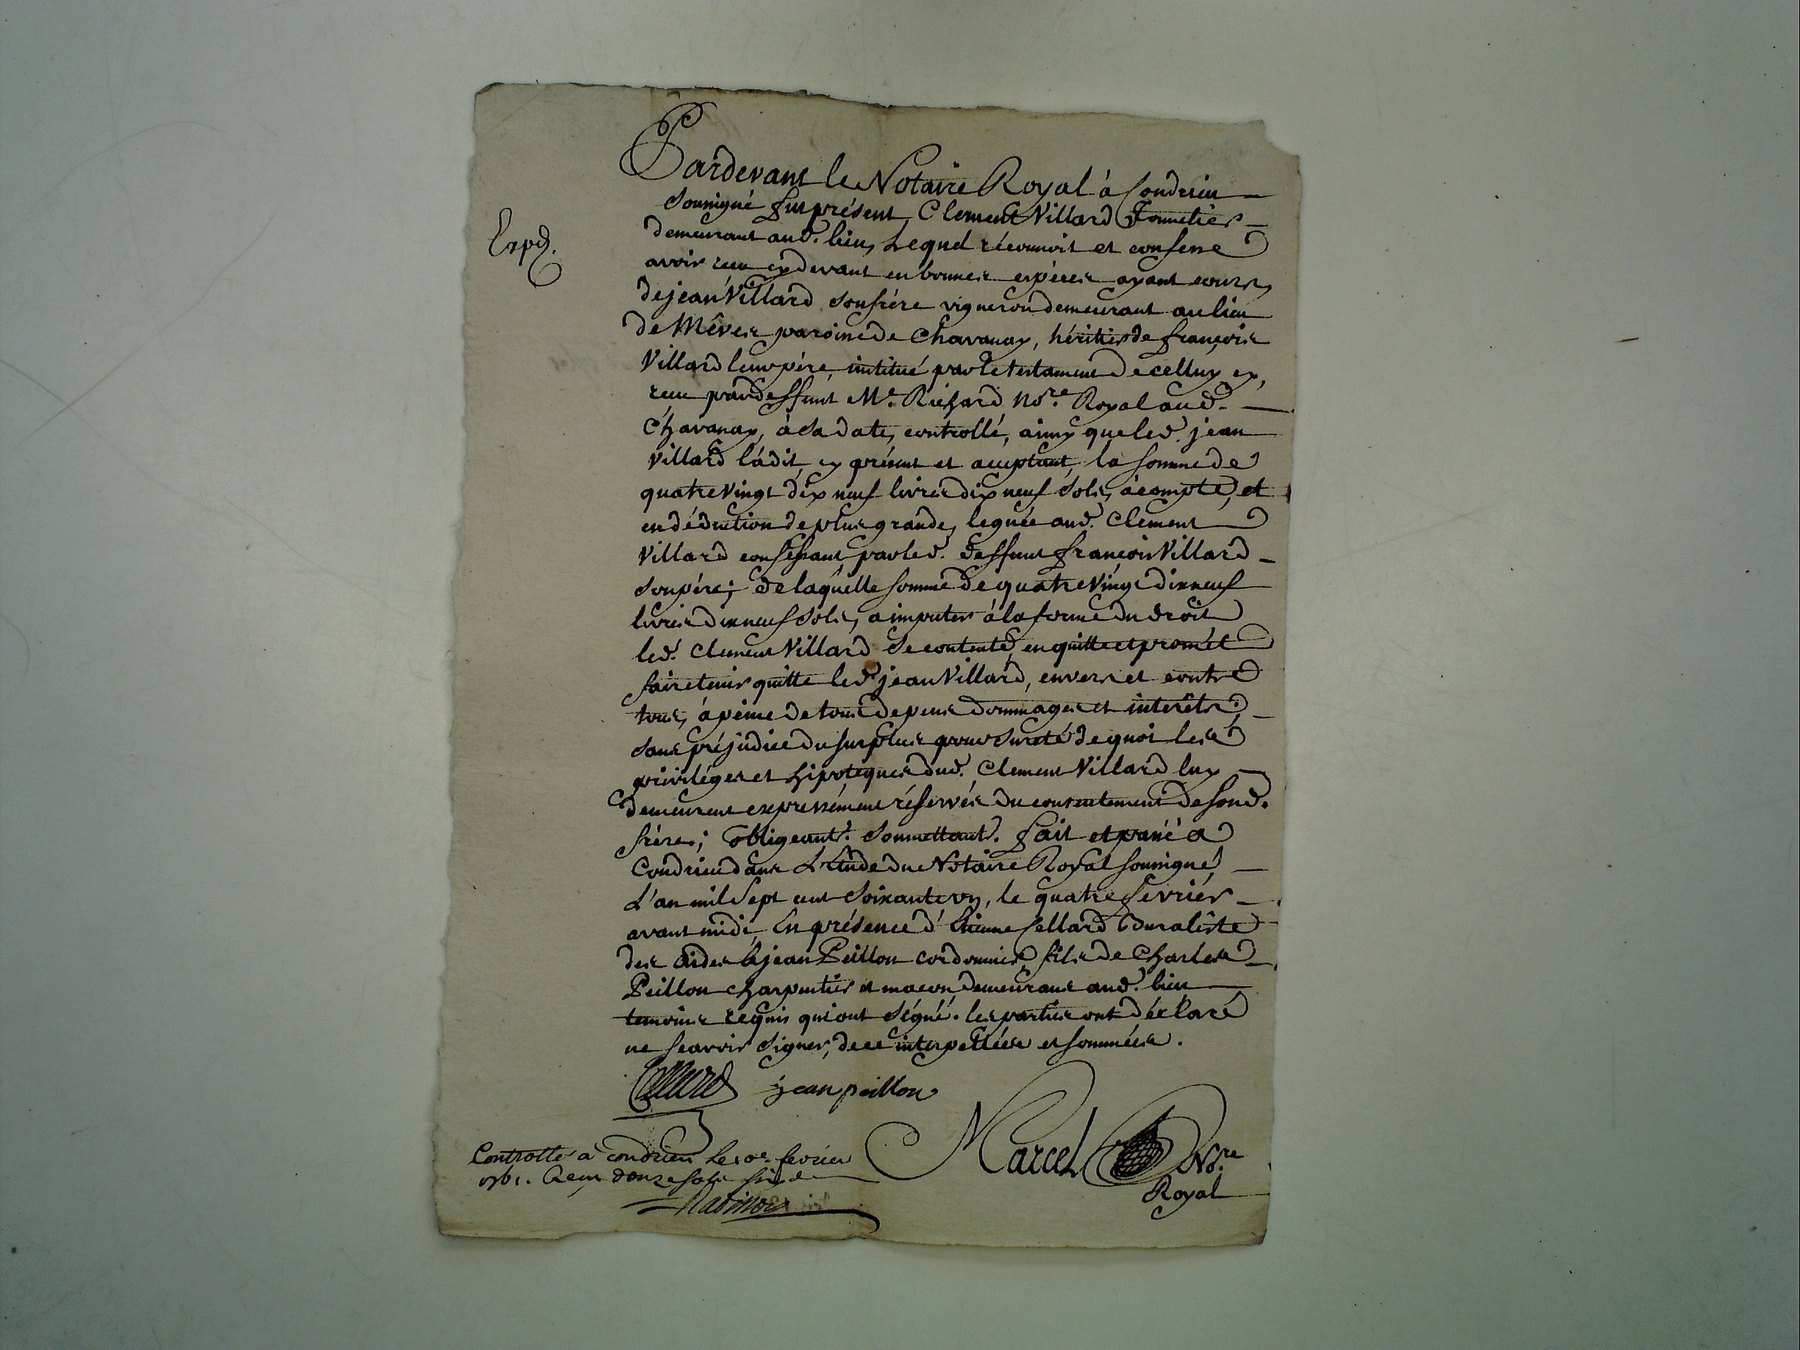 Pardevant le Notaire Royal à Condrieu
Expd.
soussigné fut présent Clement Villard Tonnelier
demeurant aud. lieu, Lequel réconnoit et confesse
avoir reçu cydevant en bonnes espèces ayant cours,
de jean Villard son frére vigneron demeurant au lieu
de Mêves paroisse de Chavanay, héritier de françois
Villard leur père, institué par le testament de celluy cy,
reçu par deffunt Me. Richard Nore. Royal aud.
Chavanay, à sa date, controllé, ainsy que led. jean
Villard l'a dit, cy présent et acceptant, la somme de
quatre vingt dix neuf livres dix neuf sols, à compte, et
en déduction de plus grande, leguée aud. Clement
Villard confessant, par led. deffunt françois Villard
son père; de laquelle somme de quatre vingt dix neuf
livres dix neuf sols, a imputer à la forme du droit
led. Clement Villard se contente, en quitte et promèt
faire tenir quitte led. jean Villard, envers et contre
tous, à peine de tous depens dommages et interêts;
sans préjudice du surplus pour sureté de quoi les
priviléges et hipoteques dud. Clement Villard luy
demeurent expressément réservés du consentement de sond.
frére; obligeant. soumettant. fait et passé a
Condrieu dans L'Etude du Notaire Royal soussigné,
L'an mil sept cent soixante un, le quatre fevrier
avant midi, En présence d'Etienne Cellard Buraliste
des aides & jean Peillon cordonnier, fils de Charles
Peillon charpentier et macon demeurans aud. lieu
temoins réquis qui ont signé. les parties ont déclaré
ne sçavoir signer, de ce interpellées et sommées.
Cellard jean peillon
Marcel Nore.
Royal
Controllé à condrieu le 10e fevrier
1761. Reçu douze sols six d